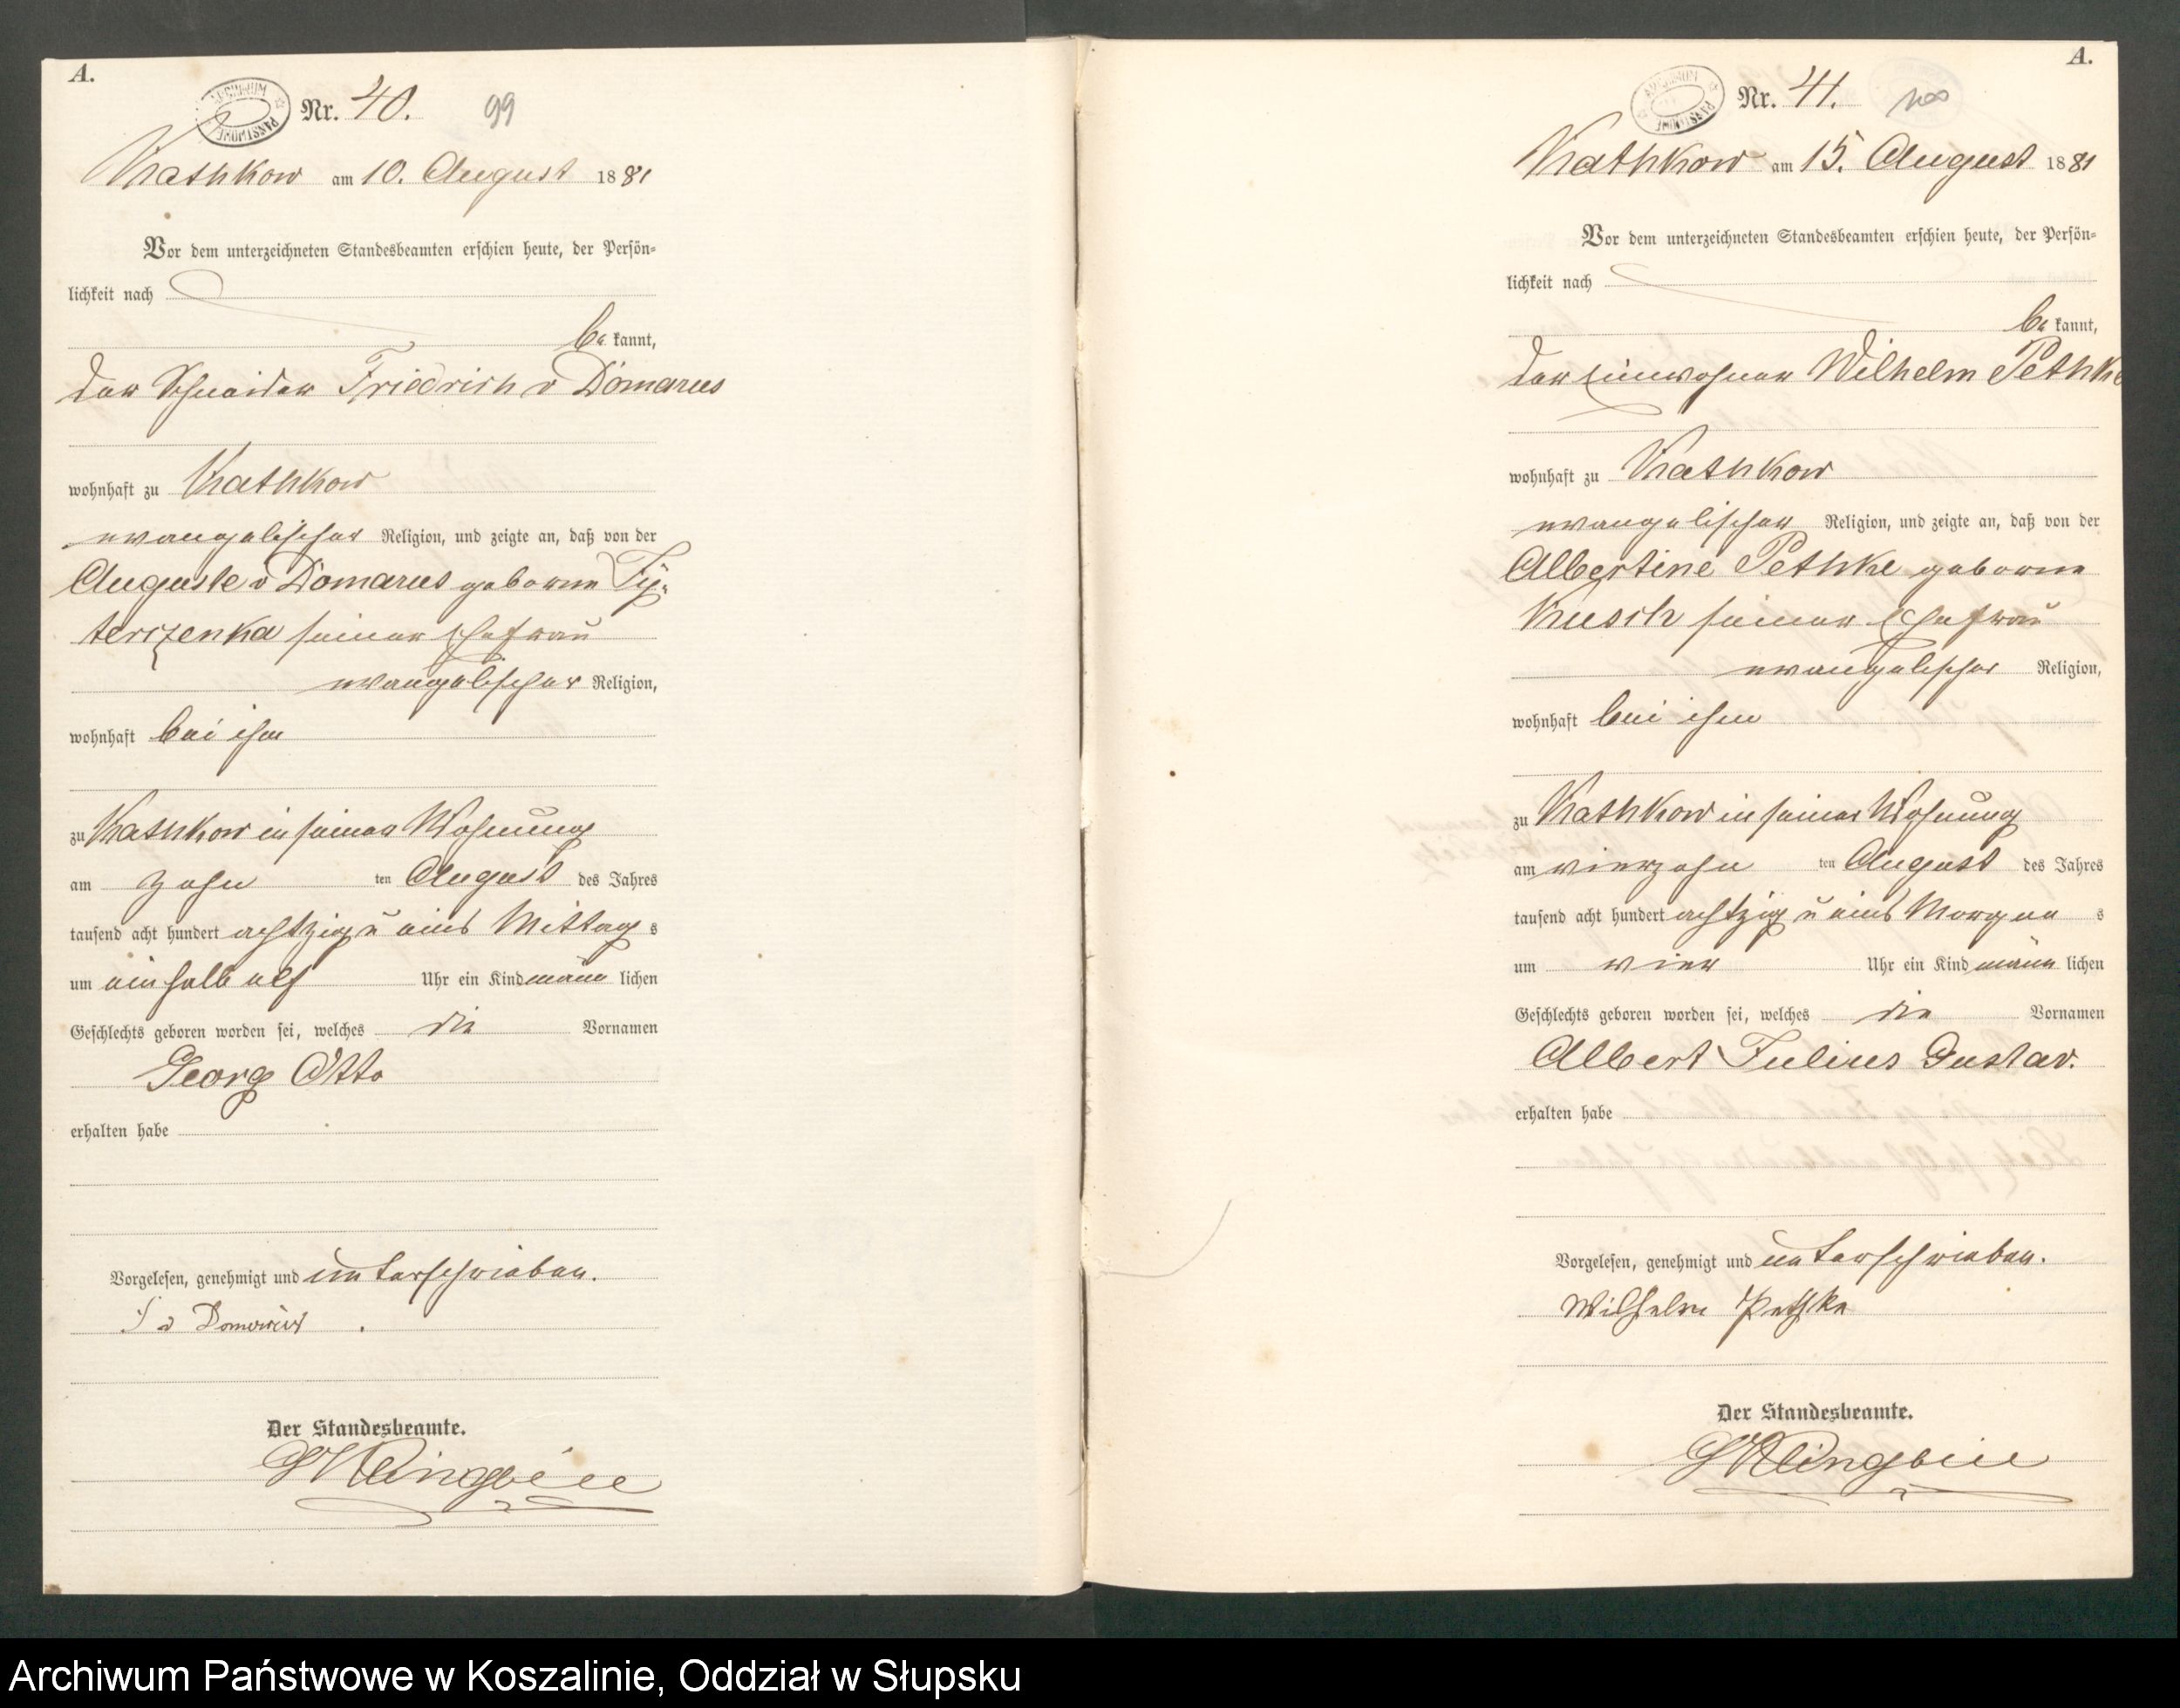 A.
ARCHIWUM PAŃSTWOWE
Nr. 40. 99
Kathkow am 10. August 1881
Vor dem unterzeichneten Standesbeamten erschien heute, der Persön-
lichkeit nach
be kannt,
der Schneider Friedrich v Domarus
wohnhaft zu Kathkow
evangelischer Religion, und zeigte an, daß von der
Auguste v Domarus geborne
seiner Ehefrau
evangelischer Religion,
wohnhaft bei ihm
zu Kathkow in seiner Wohnung
am zehn ten August des Jahres
tausend acht hundert achtzig u eins Mittag s
um ein halb elf Uhr ein Kind männ lichen
Geschlechts geboren worden sei, welches die Vornamen
Georg Otto
erhalten habe
Vorgelesen, genehmigt und unterschrieben.
v Domarus
Der Standesbeamte.
Klingbeil
A.
ARCHIWUM PAŃSTWOWE
Nr. 41. 100
Kathkow am 15. August 1881
Vor dem unterzeichneten Standesbeamten erschien heute, der Persön-
lichkeit nach
be kannt,
der Einwohner Wilhelm Pethke
wohnhaft zu Kathkow
evangelischer Religion, und zeigte an, daß von der
Albertine Pethke geborne
Kusch seiner Ehefrau
evangelischer Religion,
wohnhaft bei ihm
zu Kathkow in seiner Wohnung
am vierzehn ten August des Jahres
tausend acht hundert achtzig u eins Morgen s
um vier Uhr ein Kind männ lichen
Geschlechts geboren worden sei, welches die Vornamen
Albert Julius Gustav.
erhalten habe
Vorgelesen, genehmigt und unterschrieben.
Wilhelm Pethke
Der Standesbeamte.
Klingbeil
Archiwum Państwowe w Koszalinie, Oddział w Słupsku